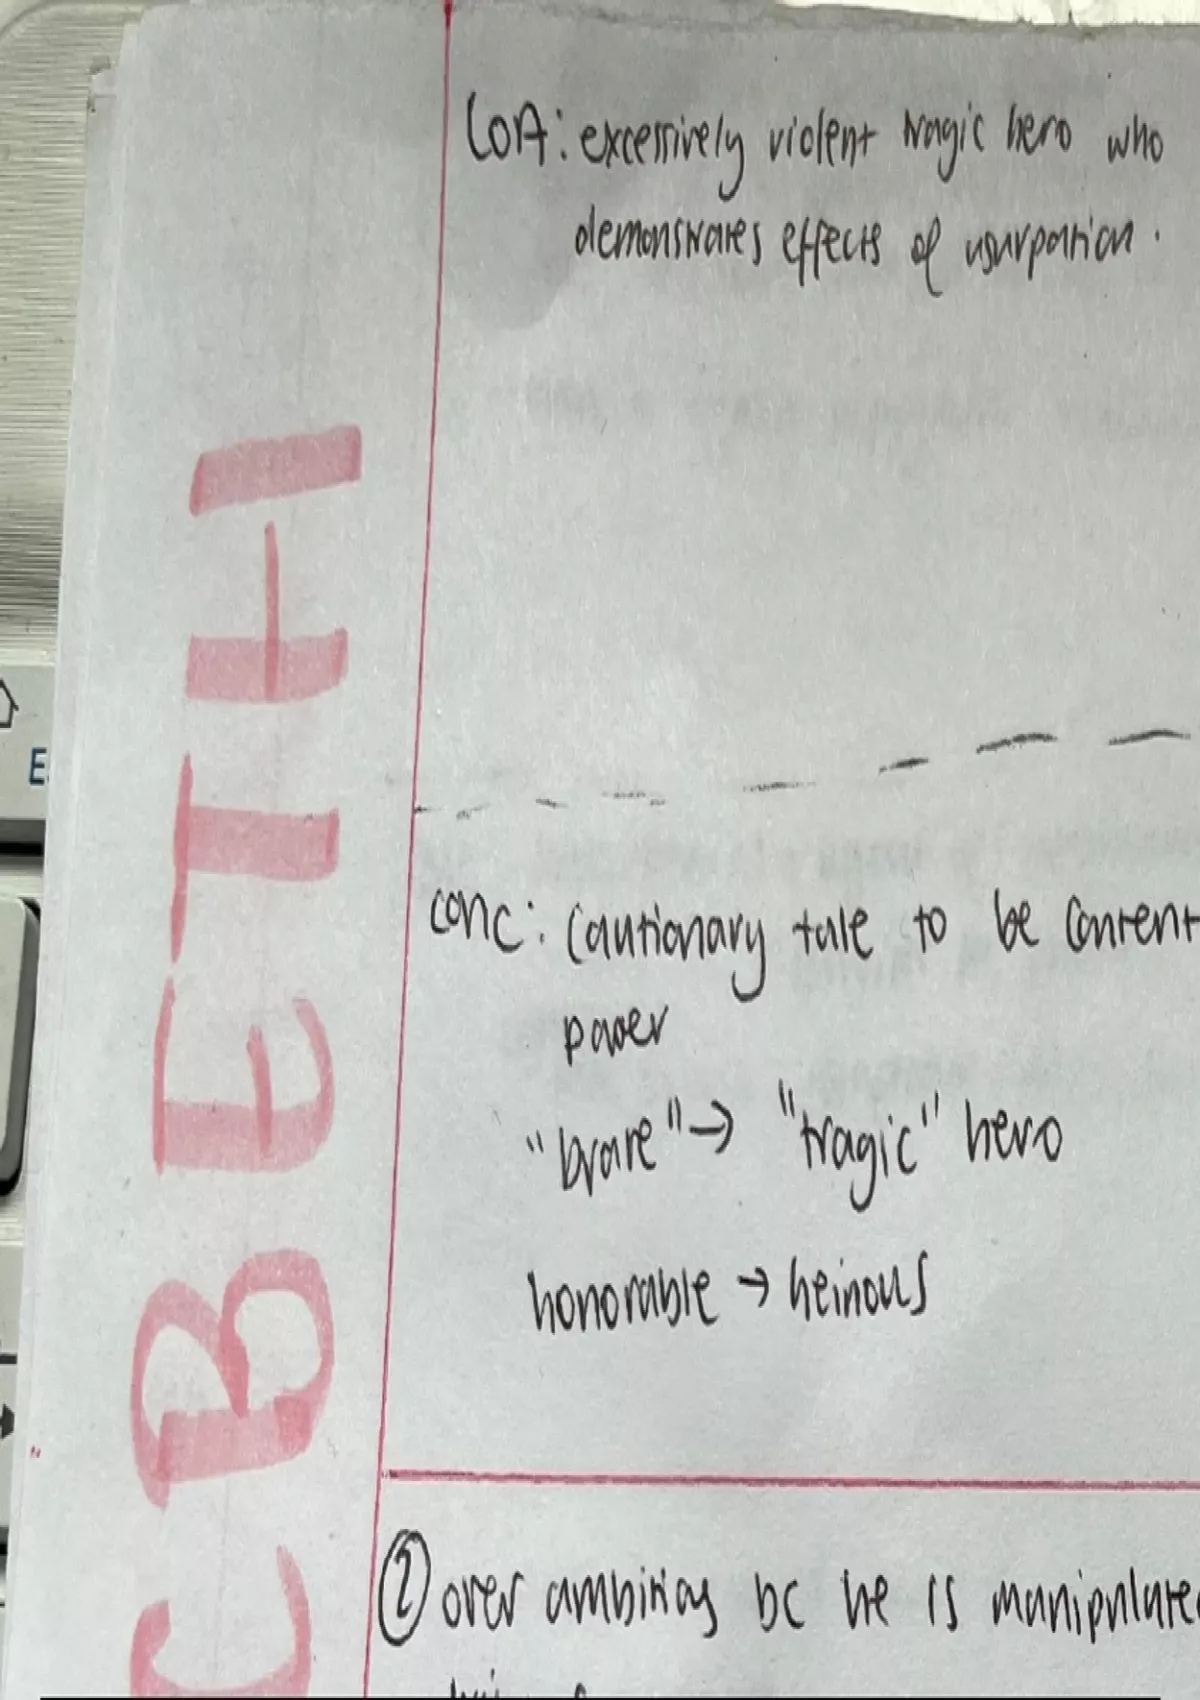 LOA: excessively violent tragic hero who
demonstrates effects of usurpation.
conc: Cautionary tale to be content
power
"brave" → "tragic" hero
honorable → heinous
② over ambitious bc he is manipulate
CBETH
E